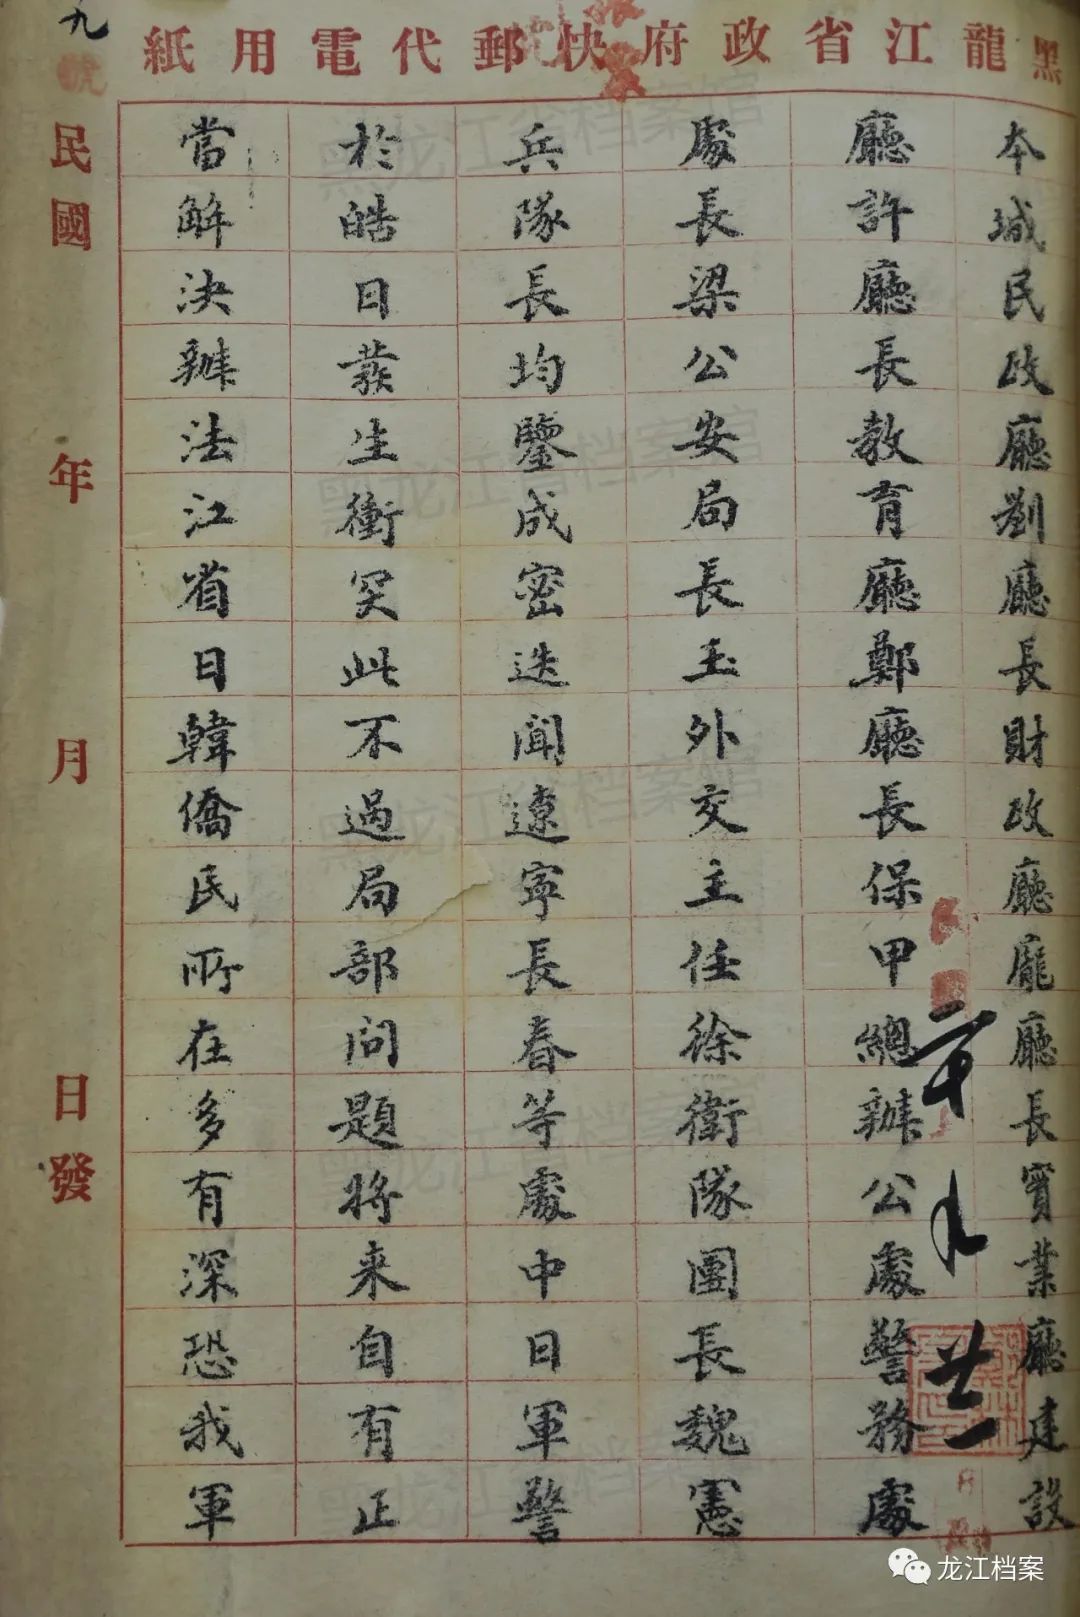 黑龍江省政府快郵代電用紙
本城民政廳劉廳長財政廳龐廳長實業廳建設
廳許廳長教育廳鄭廳長保甲總辦公處警務處
處長梁公安局長玉外交主任徐衛隊團長魏憲
兵隊長均鑒成密迭聞遼寧長春等處中日軍警
於皓日發生衝突此不過局部問題將來自有正
當解決辦法江省日韓僑民所在多有深恐我軍
九
號
民國 年 月 日發
龙江档案